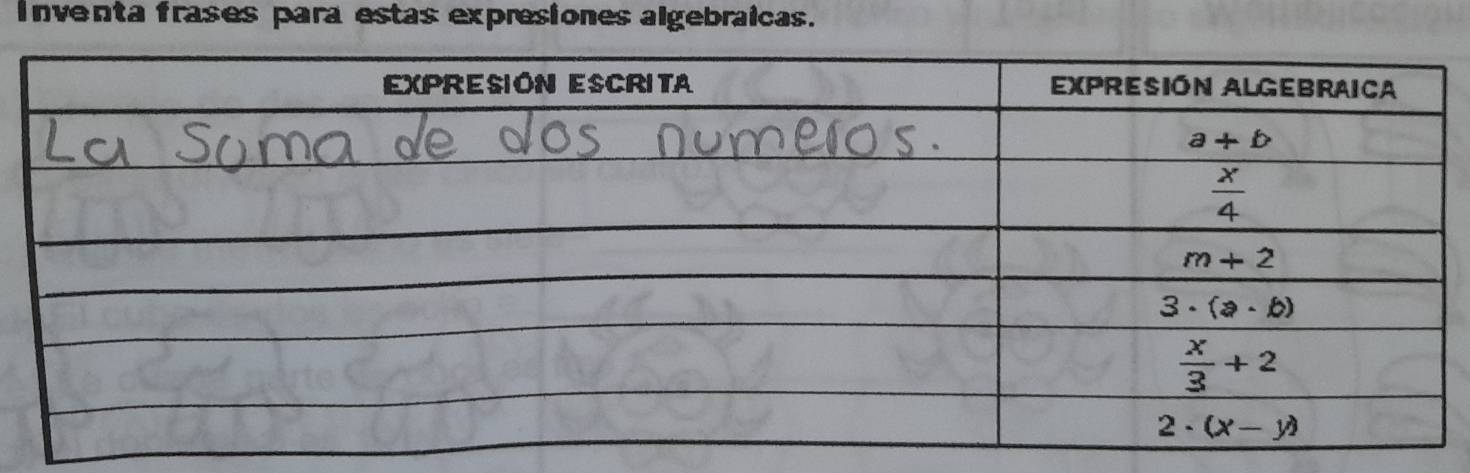 Inventa frases para estas expresiones algebraicas.
EXPRESIÓN ESCRITA EXPRESIÓN ALGEBRAICA
La suma de dos numeros. a + b
x/4
m + 2
3 · (a · b)
x/3 + 2
2 · (x − y)